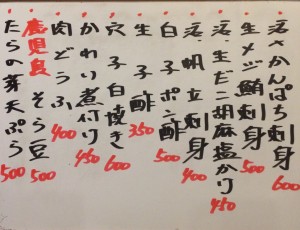 活かんぱち刺身 600
生メジ鮪刺身 500
活、生だこ胡麻塩かけ 450
活帆立刺身 400
白子ポン酢 500
生子酢 350
穴子白焼き 600
かれい煮付け 450
肉どうふ 400
鹿児島 そら豆 500
たらの芽天ぷら 500